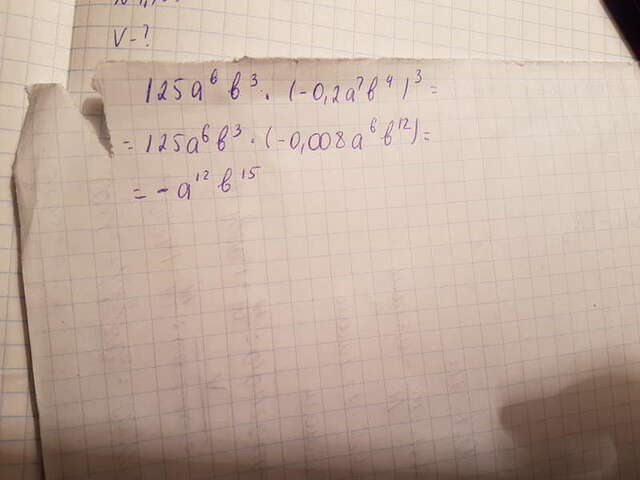 V-?
125a⁶b³·(-0,2a²b⁴)³=
=125a⁶b³·(-0,008a⁶b¹²)=
=-a¹²b¹⁵